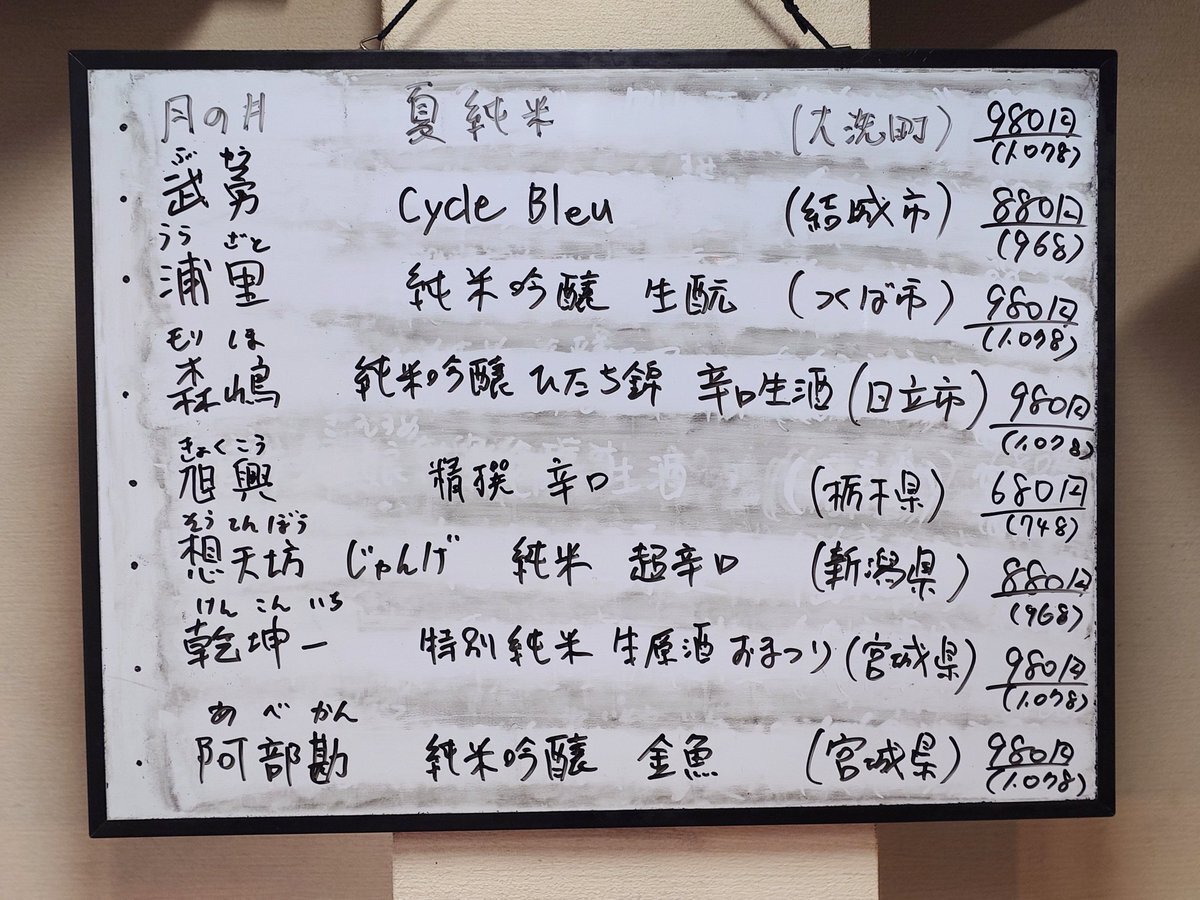 ・月の月 夏純米 (大洗町) 980円
(1.078)
ぶ ゆう
・武勇 Cycle Bleu (結城市) 880円
(968)
うら ざと
・浦里 純米吟醸 生酛 (つくば市) 980円
(1.078)
もり しま
・森嶋 純米吟醸 ひたち錦 辛口生酒 (日立市) 980円
(1.078)
きょくこう
・旭興 精撰 辛口 (栃木県) 680円
(748)
そうてんぼう
・想天坊 じゃんげ 純米 超辛口 (新潟県) 880円
(968)
けん こん いち
・乾坤一 特別純米 生原酒 おまつり (宮城県) 980円
(1.078)
あ べ かん
・阿部勘 純米吟醸 金魚 (宮城県) 980円
(1.078)